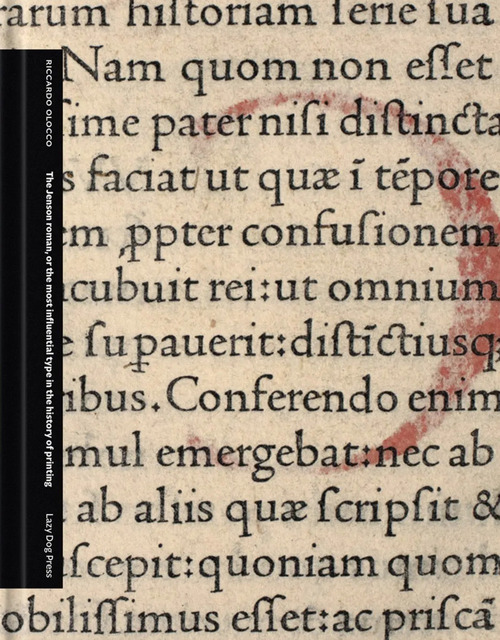 RICCARDO OLOCCO
The Jenson roman, or the most influential type in the history of printing
Lazy Dog Press
rarum hiſtoriam ſerie ſua
Nam quom non eſſet
ſime pater niſi diſtincta
s faciat ut quæ ī tēpore
em ꝓpter confuſionem
cubuit rei:ut omnium
e ſuꝑauerit:diſtīctiusq;
ribus.Conferendo enim
mul emergebat:nec ab
ab aliis quæ ſcripſit &
ſcepit:quoniam quom
obiliſſimus eſſet:ac priſcā